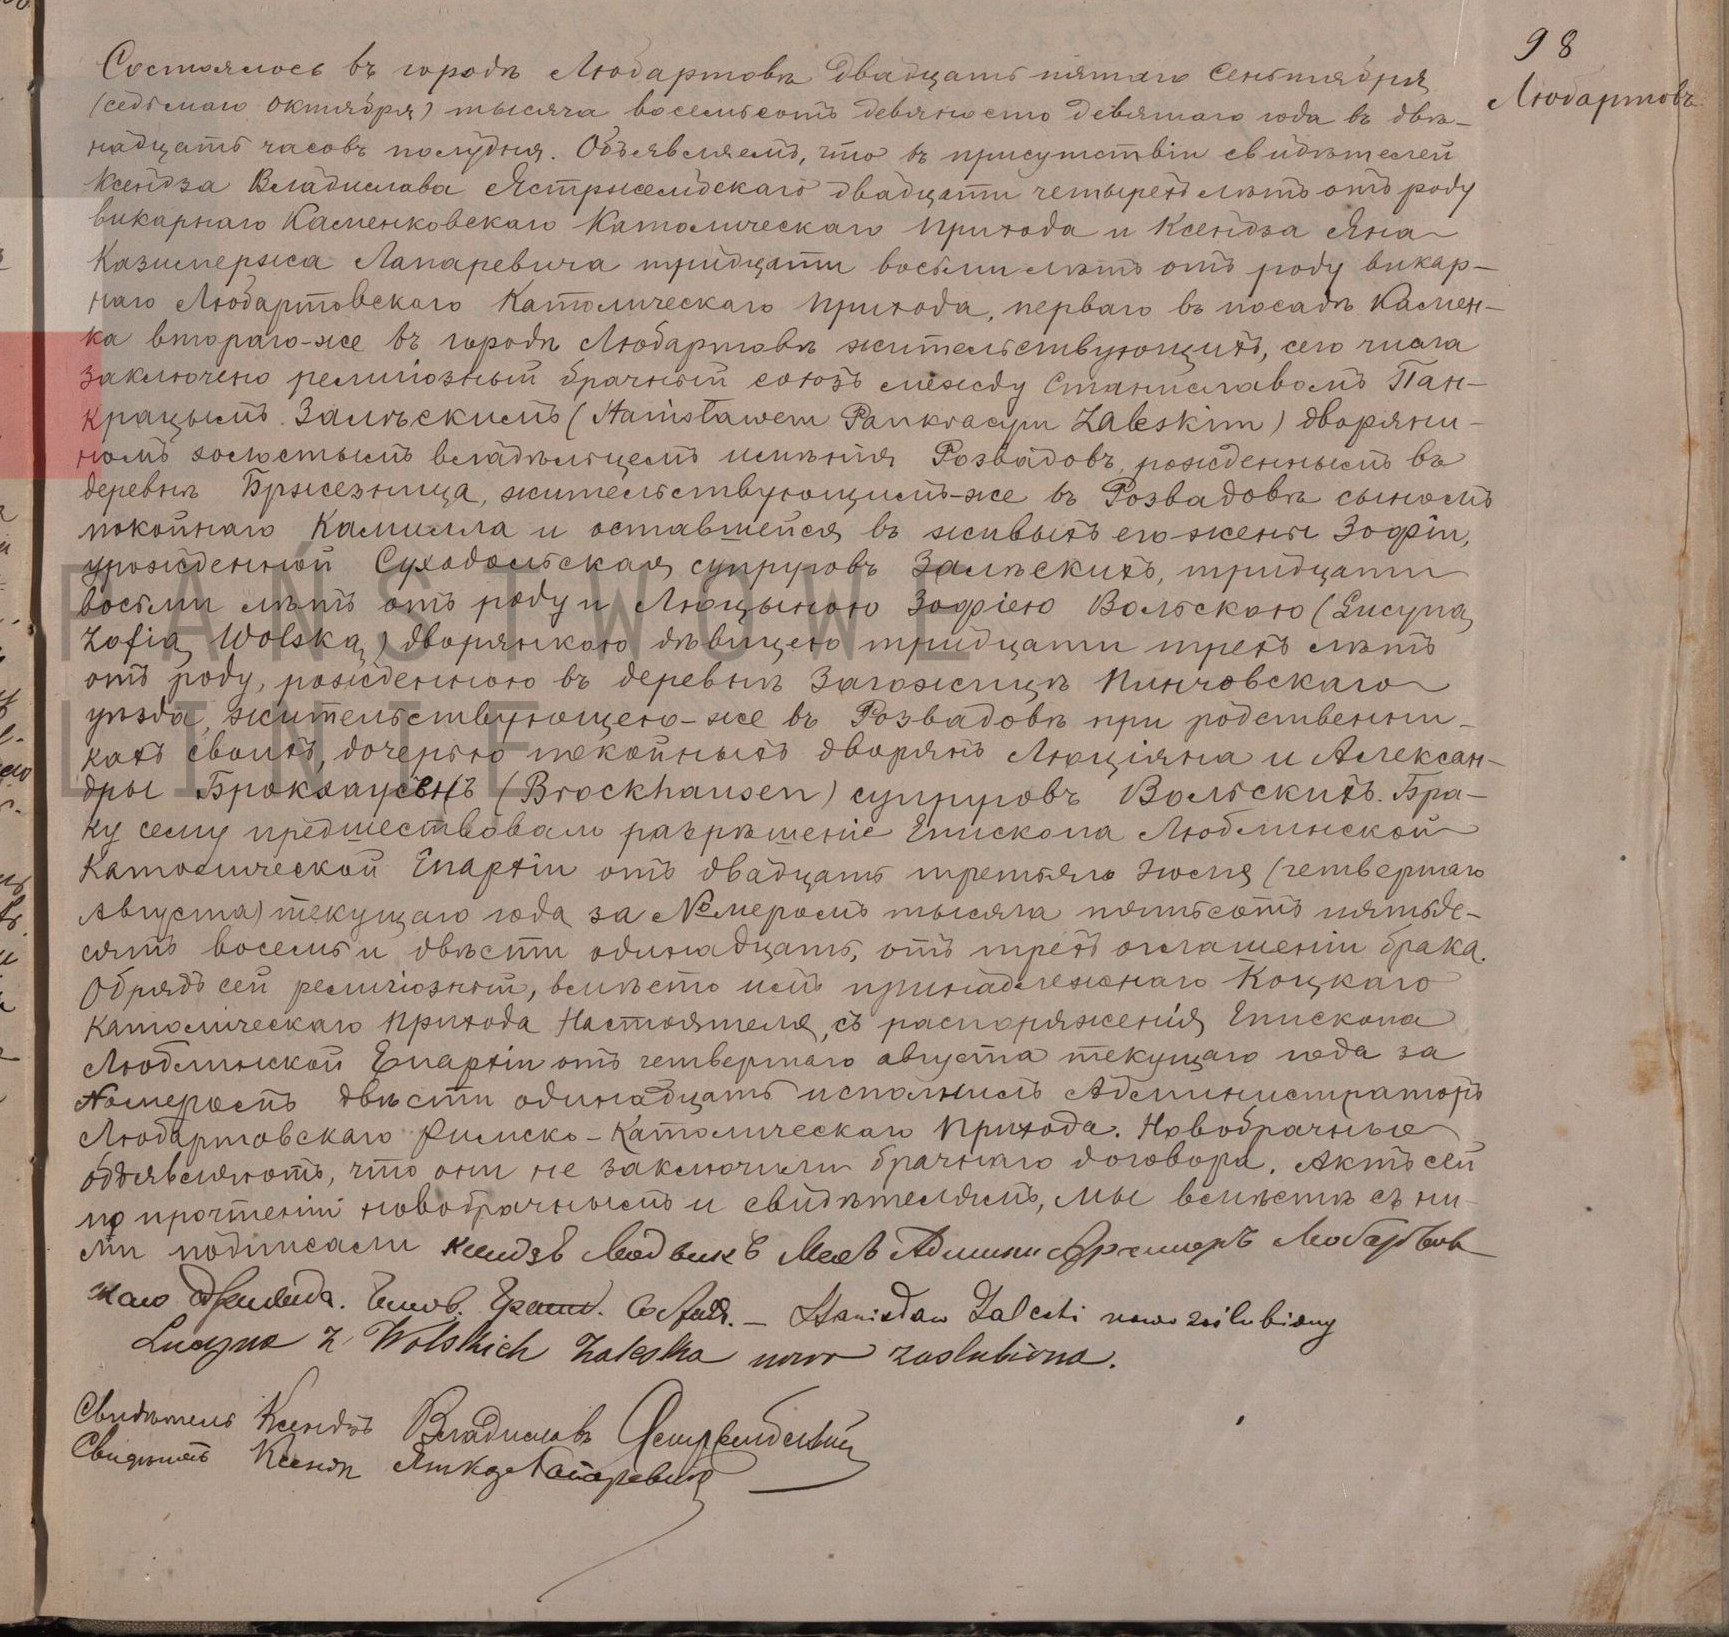 98
Любартовъ
Состоялось въ городѣ Любартовѣ двадцать пятаго Сентября
(седьмаго Октября) тысяча восемьсотъ девяносто девятаго года въ двѣ-
надцать часовъ полудня. Объявляемъ, что въ присутствіи свидѣтелей
Ксендза Владислава Ястржембскаго двадцати четырехъ лѣтъ отъ роду
викарнаго Каменковскаго Католическаго прихода и Ксендза Яна
Казимержа Лапаревича тридцати восьми лѣтъ отъ роду викар-
наго Любартовскаго Католическаго прихода, перваго въ посадѣ Камен-
ка втораго-же въ городѣ Любартовѣ жительствующихъ, сего числа
заключено религіозный брачный союзъ между Станиславомъ Пан-
крацымъ Залѣскимъ (Stanisławem Pankracym Zaleskim) дворяни-
номъ холостымъ владѣльцемъ имѣнія Розвадовъ, рожденнымъ въ
деревнѣ Бржезница, жительствующимъ-же въ Розвадовѣ сыномъ
покойнаго Камилла и оставшейся въ живыхъ его жены Зофіи,
урожденной Суходольская супруговъ Залѣскихъ, тридцати
восьми лѣтъ отъ роду и Люцыною Зофіею Вольскою (Lucyną
Zofią Wolską) дворянкою дѣвицею тридцати трехъ лѣтъ
отъ роду, рожденною въ деревнѣ Загожицѣ Пинчовскаго
уѣзда, жительствующею-же въ Розвадовѣ при родственни-
кахъ своихъ, дочерью покойныхъ дворянъ Люціяна и Алексан-
дры Брокхаусенъ (Brockhausen) супруговъ Вольскихъ. Бра-
ку сему предшествовало разрѣшеніе Епископа Люблинской
Католической Епархіи отъ двадцать третьяго Іюля (четвертаго
Августа) текущаго года за №меромъ тысяча пятьсотъ пятьде-
сятъ восемь и двѣсти одинадцать, отъ трехъ оглашеніи брака.
Обрядъ сей религіозный, вмѣсто имъ принадлежнаго Коцкаго
Католическаго прихода Настоятеля, съ распоряженія Епископа
Люблинской Епархіи отъ четвертаго августа текущаго года за
Номеромъ двѣсти одинадцать исполнилъ Администраторъ
Любартовскаго Римско-Католическаго прихода. Новобрачные
объявляютъ, что они не заключили брачнаго договора. Актъ сей
по прочтеніи новобрачнымъ и свидѣтелямъ, мы вмѣстѣ съ ни-
ми подписали Ксендзъ Администраторъ Любартов
скаго Прихода. — Stanisław Zaleski nowo zaślubiony
Lucyna z Wolskich Zaleska nowo zaslubiona.
Свидѣтель Ксендзъ Владиславъ Ястржембскій
Свидѣтель Ксендзъ Лапаревичъ
PAŃSTWOWE
LINIE